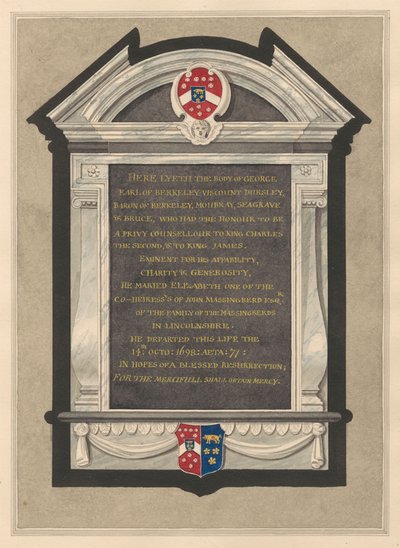 HERE LYETH THE BODY OF GEORGE
EARL OF BERKELEY, VISCOUNT DURSLEY,
BARON OF BERKELEY, MOUBRAY, SEAGRAVE
& BRUCE, WHO HAD THE HONOUR TO BE
A PRIVY COUNSELLOUR TO KING CHARLES
THE SECOND, & TO KING JAMES.
EMINENT FOR HIS AFFABILITY,
CHARITY & GENEROSITY,
HE MARIED ELIZABETH ONE OF THE
CO-HEIRESS'S OF JOHN MASSINGBERD ESQ.R
OF THE FAMILY OF THE MASSINGBERDS
IN LINCOLNSHIRE.
HE DEPARTED THIS LIFE THE
14.TH OCTO: 1698: AETA: 77:
IN HOPES OF A BLESSED RESURRECTION;
FOR THE MERCIFULL SHALL OBTAIN MERCY.